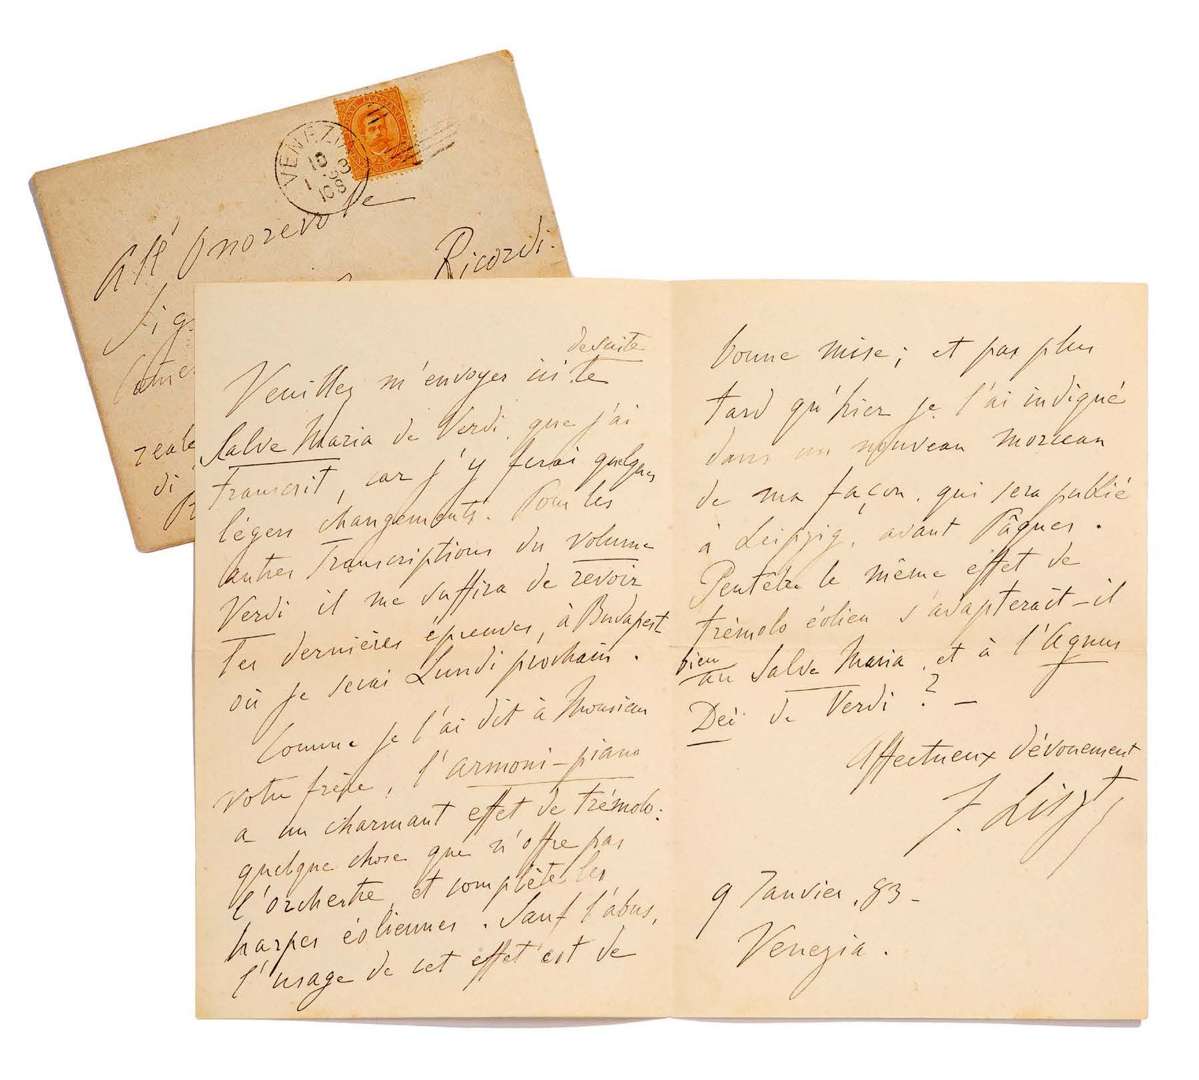 VENEZIA
10
1 - 83
All' Onorevole
Sig
Ricordi.
reale
di
desuite
Veuillez m'envoyer ici te
Salve Maria de Verdi, que j'ai
transcrit, car j'y ferai quelques
légers changements. Pour les
autres Transcriptions du volume
Verdi il me suffira de revoir
les dernières épreuves, à Budapest
où je serai Lundi prochain.
Comme je l'ai dit à Monsieur
votre frère, l'armoni-piano
a un charmant effet de trémolo:
quelque chose que n'offre pas
l'orchestre, et complète les
harpes éoliennes. Sauf l'abus,
l'usage de cet effet est de
bonne mise; et pas plus
tard qu'hier je l'ai indiqué
dans un nouveau morceau
de ma façon, qui sera publié
à Leipzig, avant Pâques.
Peutêtre le même effet de
trémolo éolien s'adapterait-il
bien
au Salve Maria, et à l'Agnus
Dei de Verdi? —
Affectueux dévouement
F. Liszt
9 Janvier, 83 -
Venezia.